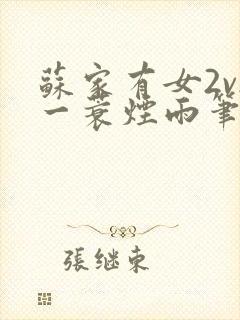 蘇家有女2v
一蓑煙雨筆
張继東